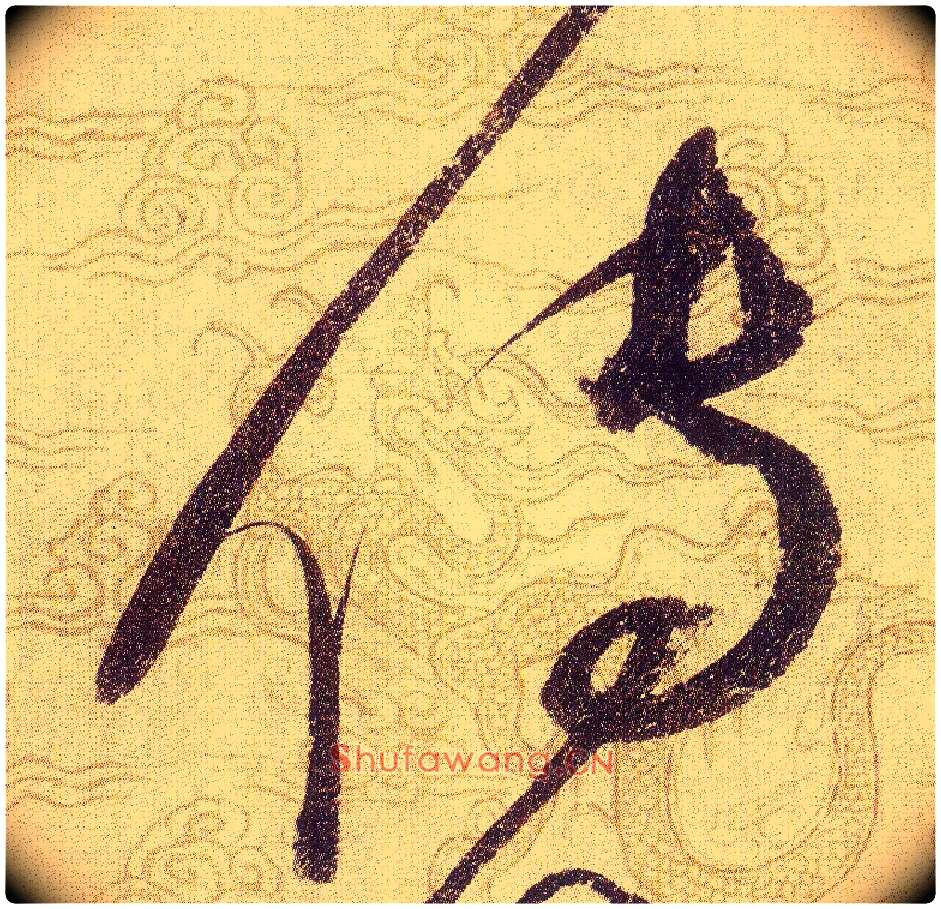 傳
Shufawang.CN